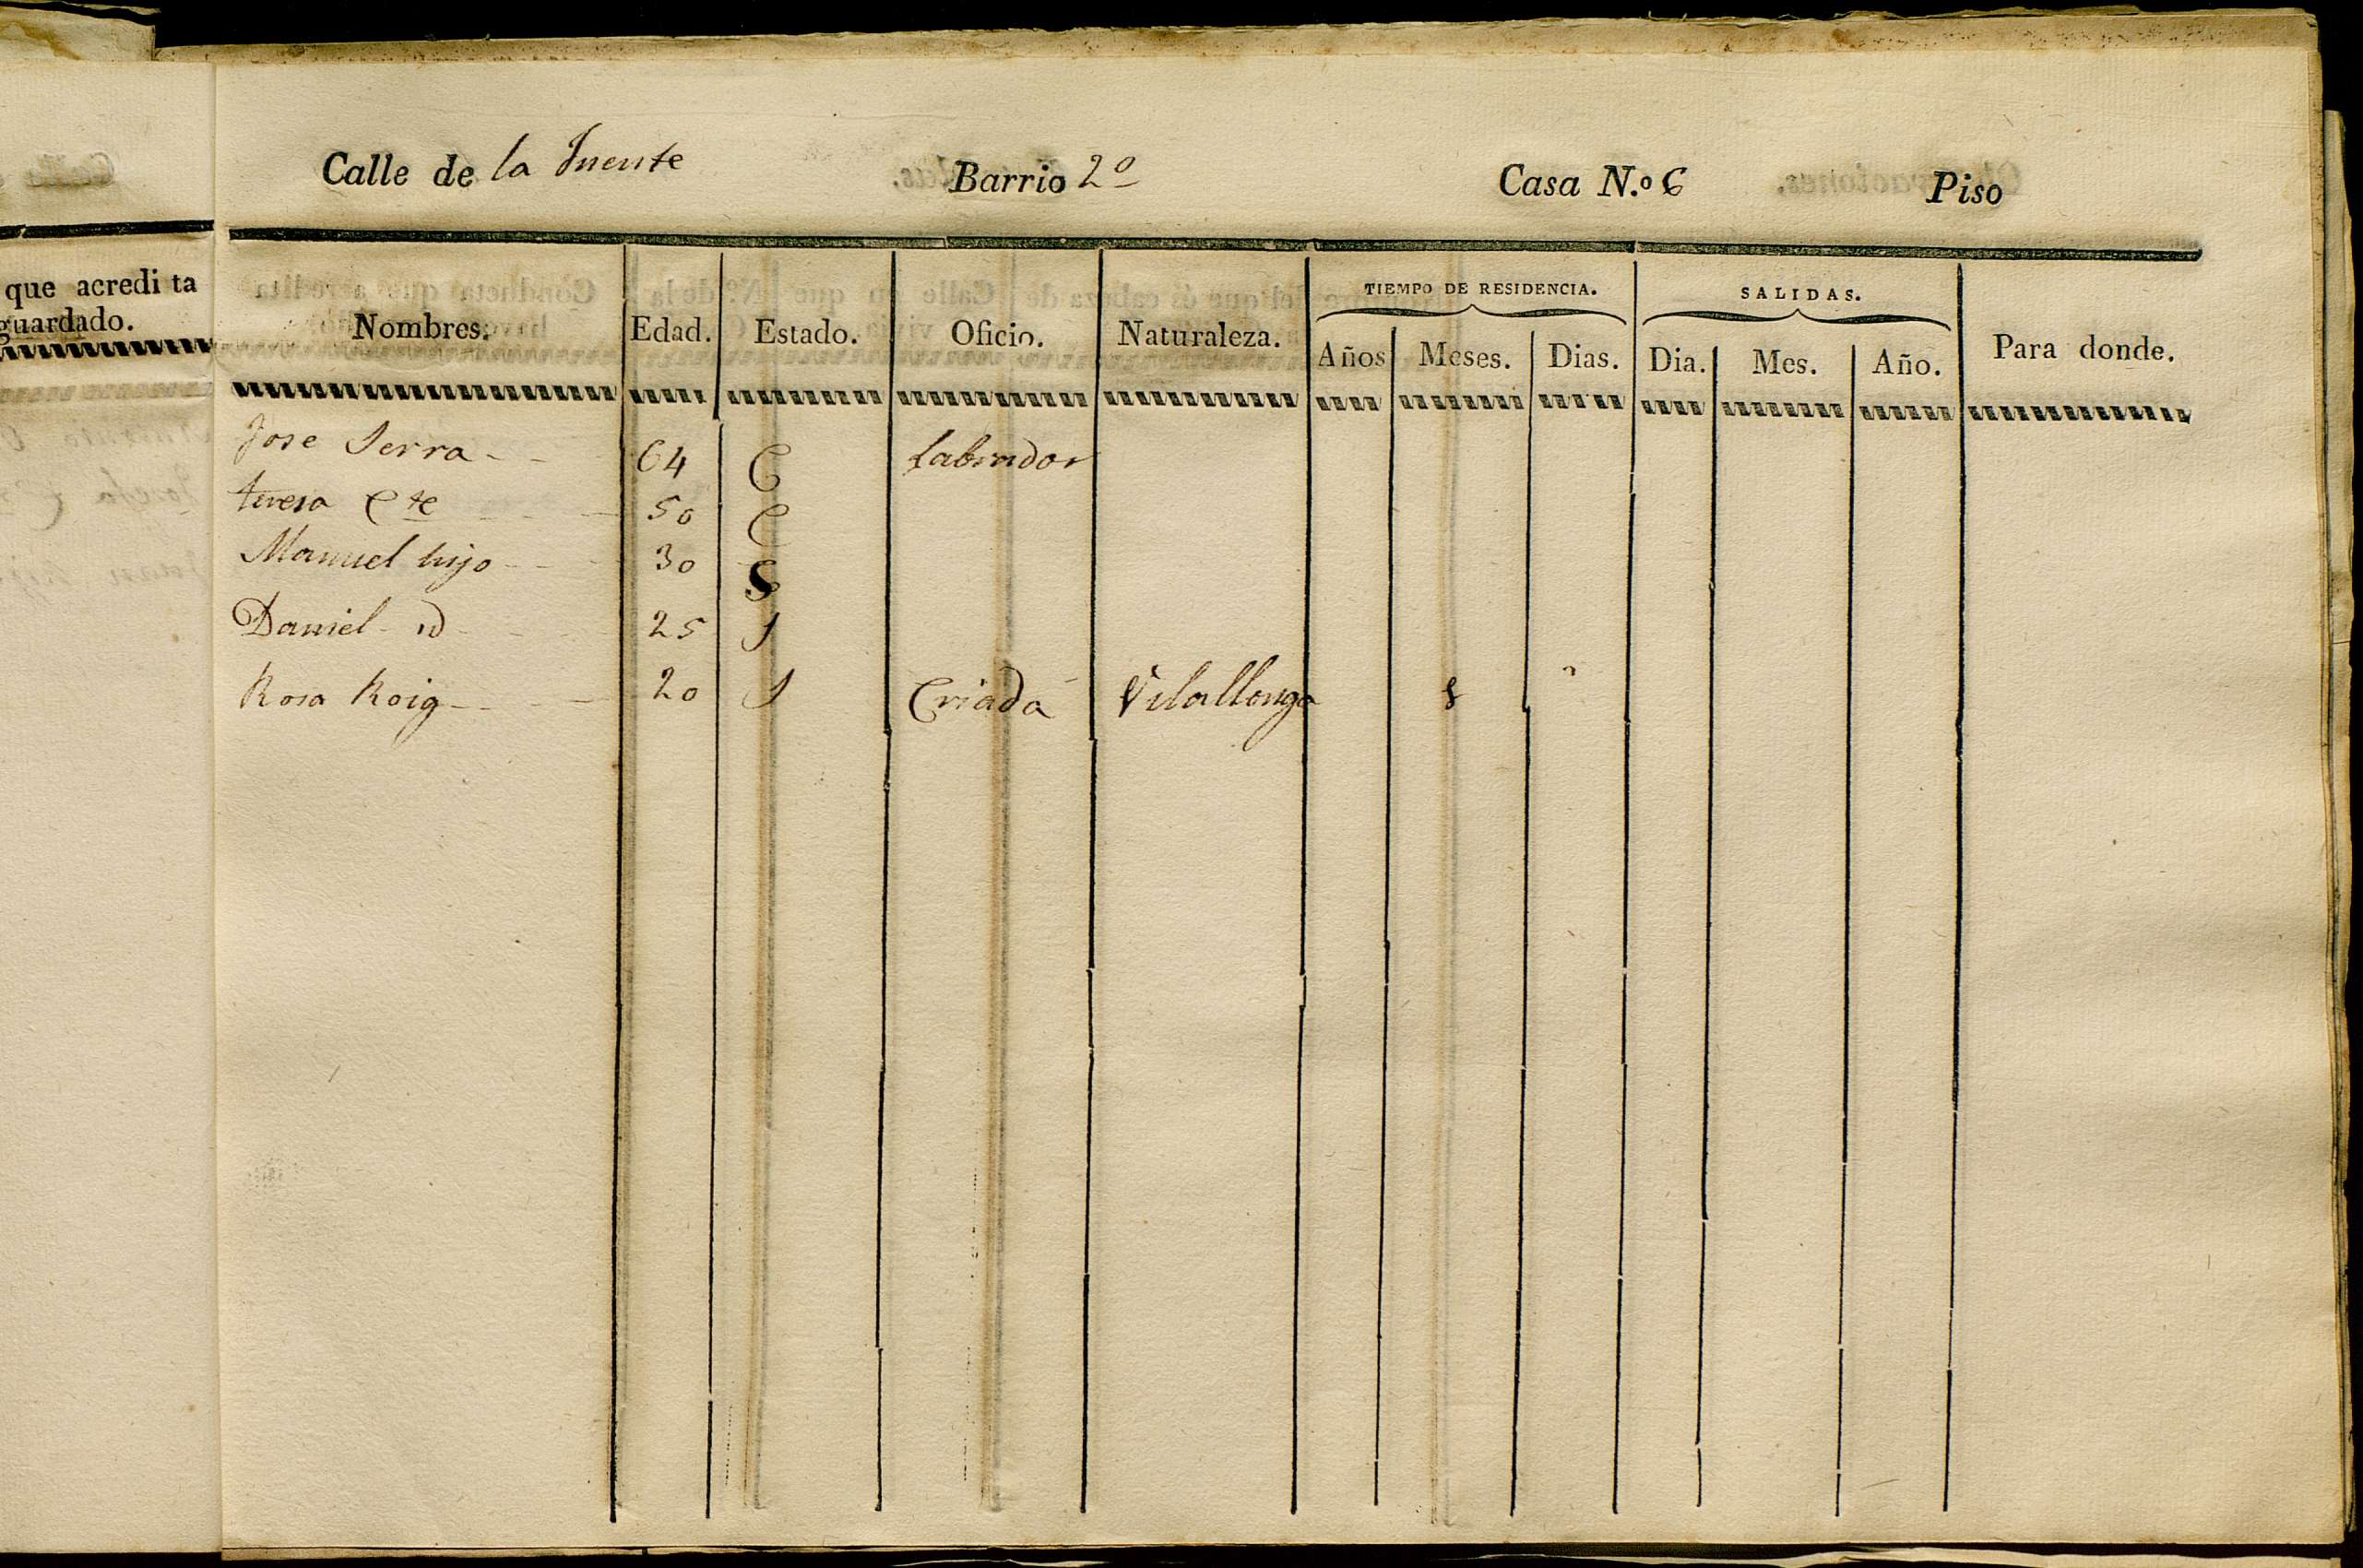 Calle de la Fuente Barrio 2º Casa N.º 6 Piso
que acredita
guardado.
TIEMPO DE RESIDENCIA. SALIDAS.
Nombres. Edad. Estado. Oficio. Naturaleza. Años Meses. Dias. Dia. Mes. Año. Para donde.
Jose Serra 64 C Labrador
teresa Cte 50 C
Manuel hijo 30 S
Daniel id 25 S
Rosa Roig 20 S Criada Vilallonga 8